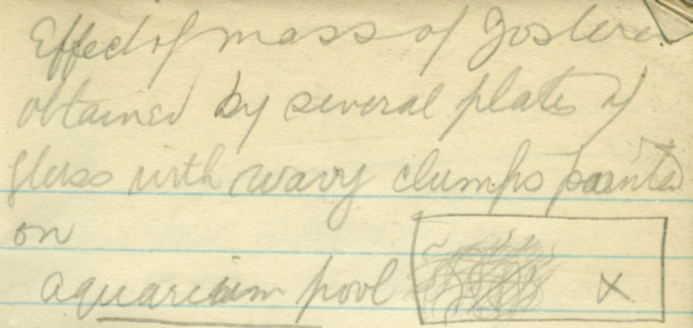 Effect of mass of Zostera
obtained by several plates of
glass with wavy clumps painted
on
aquarium pool X